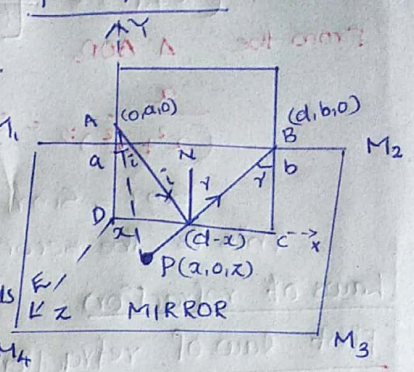 Y
A (0,a,0)
(d,b,0)
M₁
B
M₂
a
i
i
N
r
r
b
D
x
(d-x)
C
x
P(x,0,z)
z
MIRROR
M₄
M₃